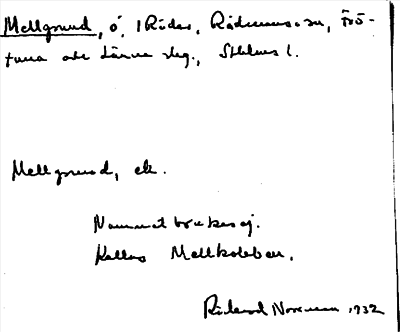 Mellgrund, ö, i Råder, Rådmansö sn, Frö-
tuna och Länna skg., Sthlms l.
Mellgrund, ek.
Namnet brukas ej.
Kallas Mellkobben.
Rickard Norrman 1932